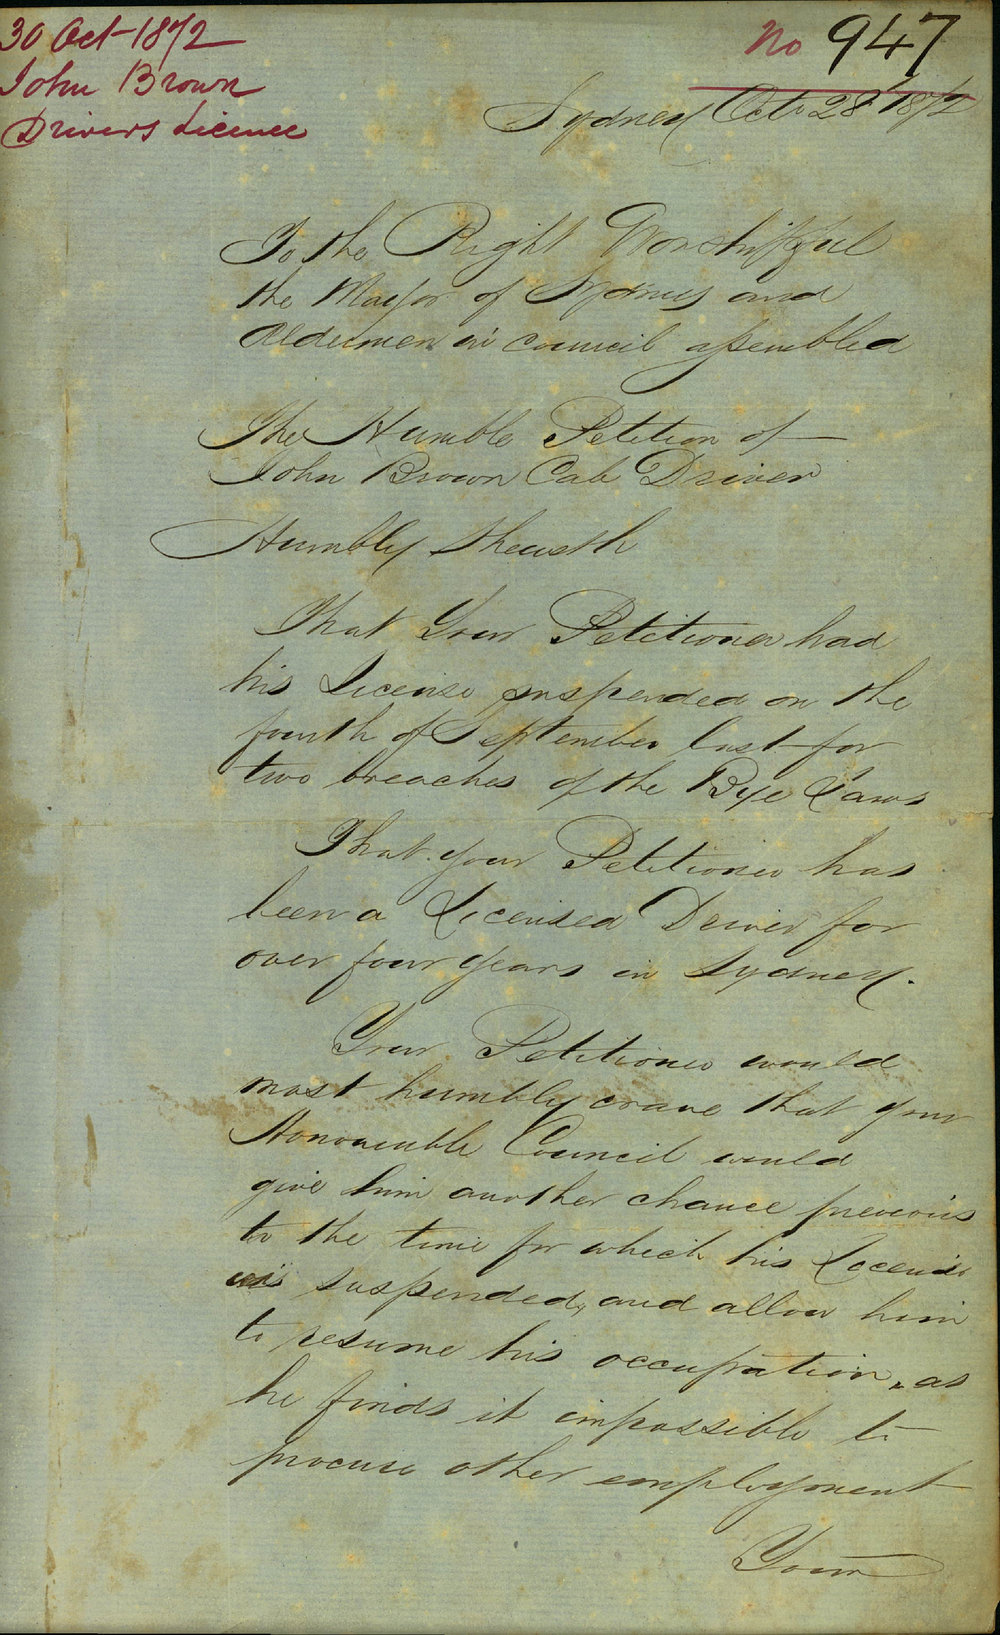 30 Oct 1872
John Brown
Drivers Licence
No 947
Sydney Oct 28th 1872
To the Right Worshipful
the Mayor of Sydney and
Aldermen in council assembled
The Humble Petition of
John Brown Cab Driver
Humbly Sheweth
That Your Petitioner had
his License suspended on the
fourth of September last for
two breaches of the Bye Laws
That your Petitioner has
been a Licensed Driver for
over four years in Sydney.
Your Petitioner would
most humbly crave that your
Honourable Council would
give him another chance previous
to the time for which his License
is suspended, and allow him
to resume his occupation, as
he finds it impossible to
procure other employment
Your